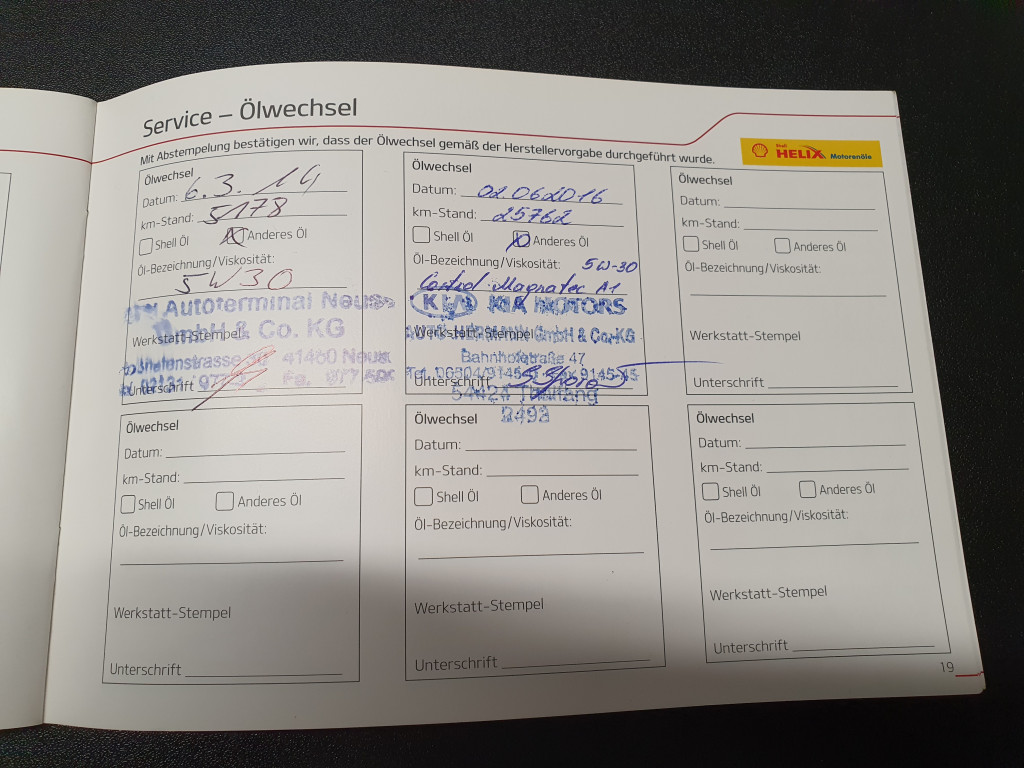 Service – Ölwechsel
Mit Abstempelung bestätigen wir, dass der Ölwechsel gemäß der Herstellervorgabe durchgeführt wurde.
Shell
HELIX Motorenöle
Ölwechsel
Datum: 6.3.14
km-Stand: 5178
Shell Öl Anderes Öl
Öl-Bezeichnung/Viskosität:
5W30
Autoterminal Neuss
GmbH & Co. KG
Werkstatt-Stempel
41460 Neuss
Unterschrift
Ölwechsel
Datum: 02.06.2016
km-Stand: 25762
Shell Öl Anderes Öl
Öl-Bezeichnung/Viskosität: 5W-30
Castrol Magnatec A1
KIA KIA MOTORS
Werkstatt-Stempel GmbH & Co.KG
Bahnhofstraße 47
Unterschrift
54424 Thalfang
Ölwechsel
Datum:
km-Stand:
Shell Öl Anderes Öl
Öl-Bezeichnung/Viskosität:
Werkstatt-Stempel
Unterschrift
Ölwechsel
Datum:
km-Stand:
Shell Öl Anderes Öl
Öl-Bezeichnung/Viskosität:
Werkstatt-Stempel
Unterschrift
Ölwechsel
Datum:
km-Stand:
Shell Öl Anderes Öl
Öl-Bezeichnung/Viskosität:
Werkstatt-Stempel
Unterschrift
Ölwechsel
Datum:
km-Stand:
Shell Öl Anderes Öl
Öl-Bezeichnung/Viskosität:
Werkstatt-Stempel
Unterschrift
19